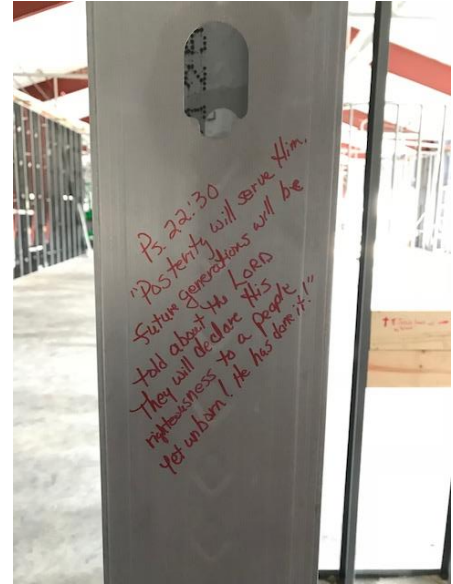 Ps. 22:30
"Posterity will serve Him.
future generations will be
told about the LORD
They will declare this
righteousness to a people
yet unborn! He has done it!"